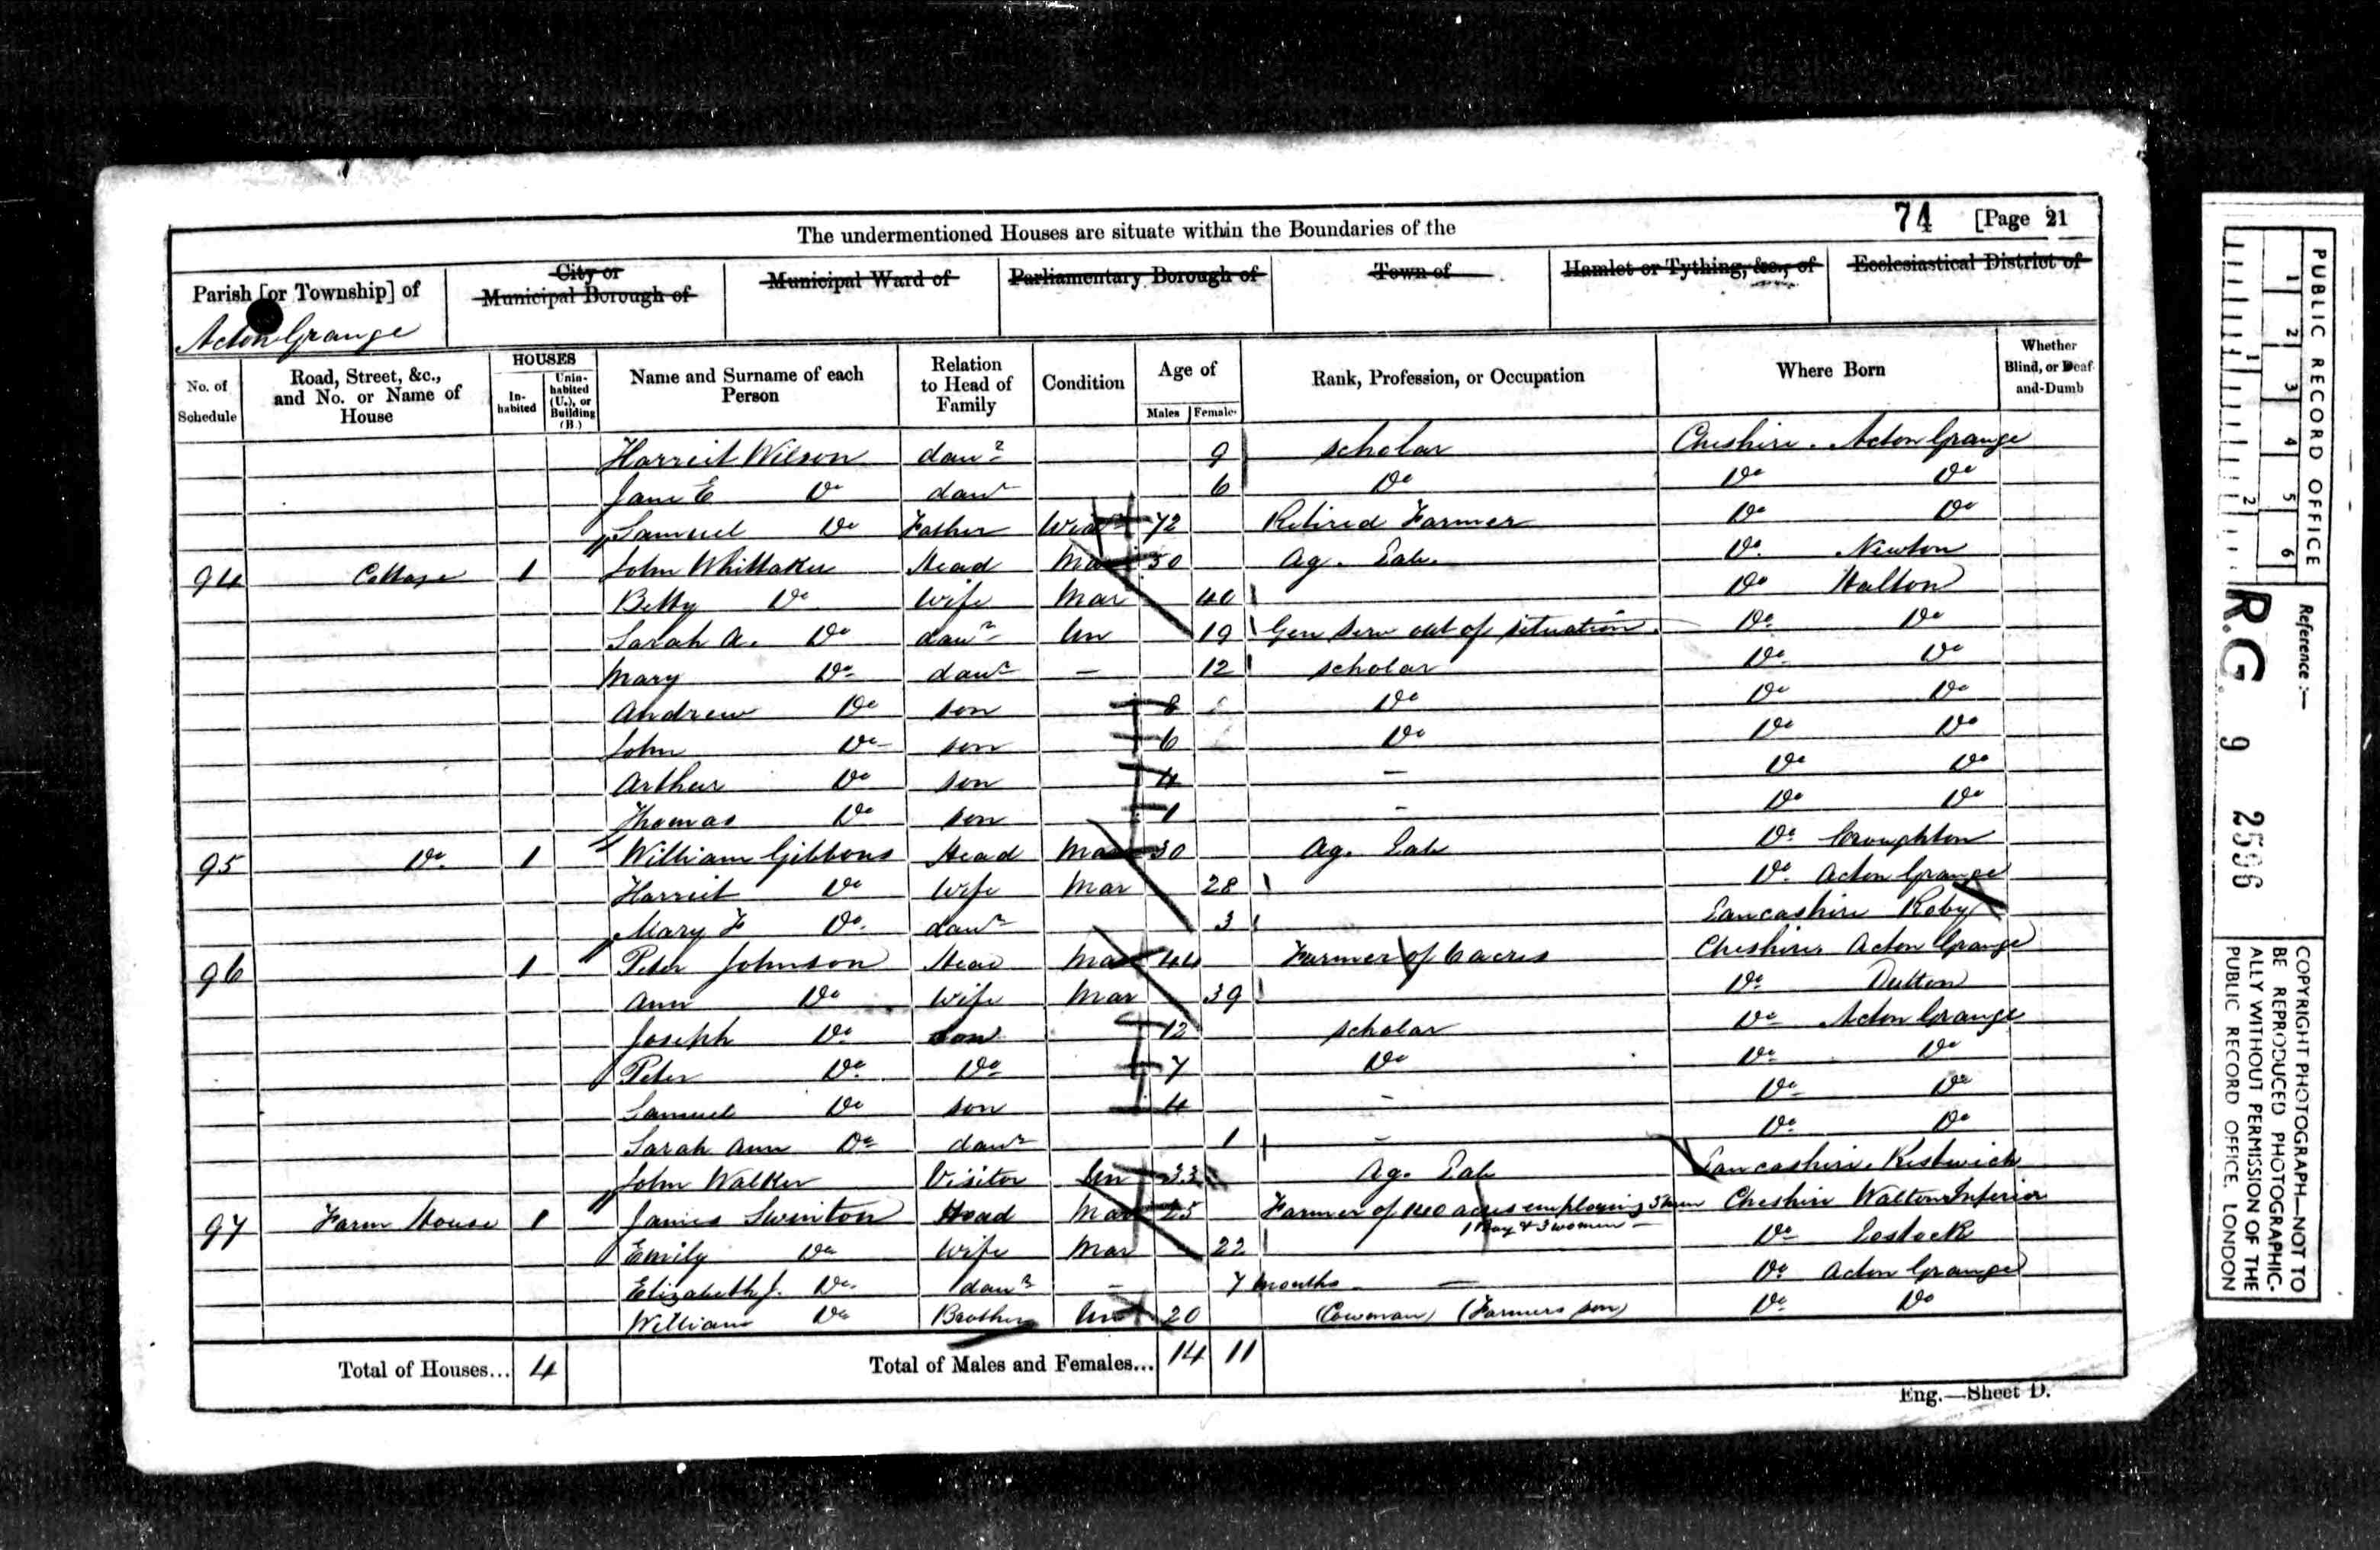 The undermentioned Houses are situate within the Boundaries of the
74 [Page 21
Parish [or Township] of
City or
Municipal Borough of
Municipal Ward of
Parliamentary Borough of
Town of
Hamlet or Tything, &c., of
Ecclesiastical District of
Acton Grange
No. of Schedule
Road, Street, &c., and No. or Name of House
HOUSES
In-habited
Unin-habited (U.), or Building (B.)
Name and Surname of each Person
Relation to Head of Family
Condition
Age of
Males Females
Rank, Profession, or Occupation
Where Born
Whether Blind, or Deaf-and-Dumb
Harriet Wilson daur 9 scholar Cheshire. Acton Grange
Jane E Do daur 6 Do Do Do
Samuel Do Father Widr 72 Retired Farmer Do Do
94 Cottage 1 John Whittaker Head Mar 50 Ag. Lab. Do Newton
Betty Do Wife Mar 40 Do Halton
Sarah A. Do daur Un 19 Gen Serv out of situation. Do Do
Mary Do daur — 12 scholar Do Do
Andrew Do son 8 Do Do Do
John Do son 6 Do Do Do
Arthur Do son 4 — Do Do
Thomas Do son 1 — Do Do
95 Do 1 William Gibbons Head Mar 30 Ag. Lab Do Croughton
Harriet Do Wife Mar 28 Do Acton Grange
Mary F Do daur 3 Lancashire Roby
96 1 Peter Johnson Head Mar 44 Farmer of 6 acres Cheshire Acton Grange
Ann Do Wife Mar 39 Do Dutton
Joseph Do son 12 scholar Do Acton Grange
Peter Do Do 7 Do Do Do
Samuel Do son 4 — Do Do
Sarah Ann Do daur 1 — Do Do
John Walker Visitor Un 33 Ag. Lab Lancashire
97 Farm House 1 James Swinton Head Mar 25 Farmer of 140 acres employing 3 men Cheshire Walton Inferior
1 Boy & 3 women —
Emily Do Wife Mar 22 Do Lostock
Elizabeth J. Do daur — 7 months — Do Acton Grange
William Do Brother Un 20 (Cowman) (Farmers son) Do Do
Total of Houses... 4 Total of Males and Females... 14 11
Eng.—Sheet D.
PUBLIC RECORD OFFICE
1 2 3 4 5 6
1 2
Reference:—
R.G. 9 2596
COPYRIGHT PHOTOGRAPH—NOT TO
BE REPRODUCED PHOTOGRAPHIC-
ALLY WITHOUT PERMISSION OF THE
PUBLIC RECORD OFFICE, LONDON